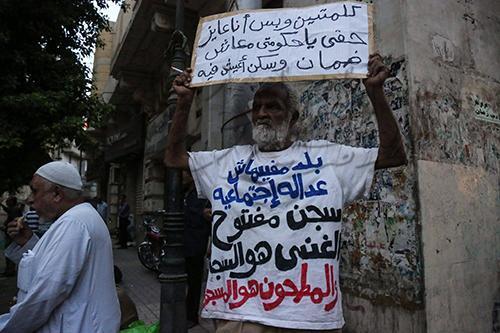 كلمتين وبس أنا عايز
حقى ياحكومتى معاش
ضمان وسكن أعيش فيه
بلد مفيهاش
عداله إجتماعيه
سجن مفتوح
الغنى هو السجا
المطحون هو المسجو